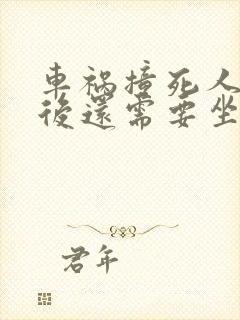 車禍撞死人
後還需要坐
君年